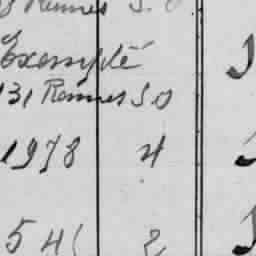 Rennes S.O
Exempté
131 Rennes S O
1978 4
541 2